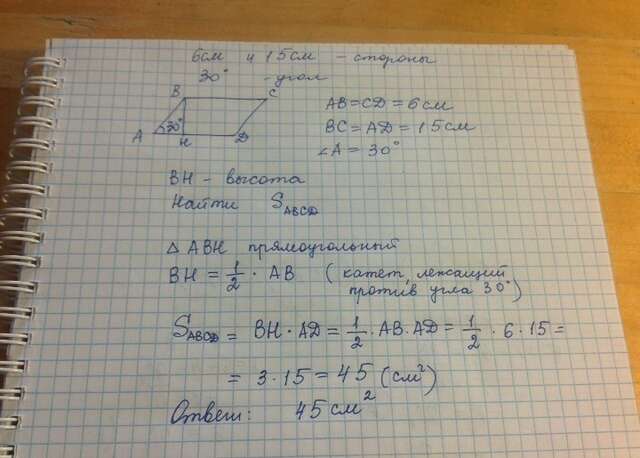 6см и 15см – стороны
30° – угол
B C
A 30° H D
AB = CD = 6 см
BC = AD = 15 см
∠A = 30°
BH – высота
Найти S_ABCD
△ ABH прямоугольный
BH = 1/2 · AB (катет, лежащий
против угла 30°)
S_ABCD = BH · AD = 1/2 · AB · AD = 1/2 · 6 · 15 =
= 3 · 15 = 45 (см²)
Ответ: 45 см²